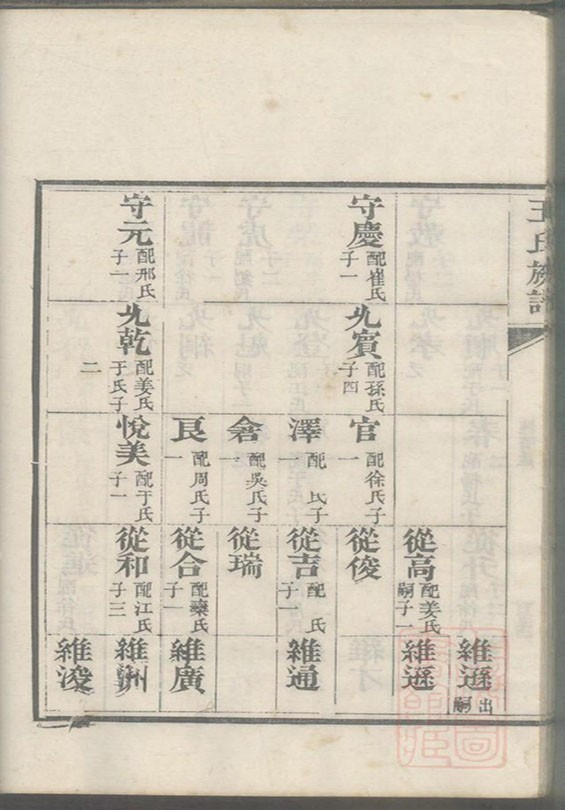 王氏族譜
維遜 出嗣
從高 配姜氏 嗣子一
維遜
守慶 配崔氏 子一
允賓 配孫氏 子四
官 配徐氏子一
從俊
澤 配 氏子一
從吉 配 氏 子一
維通
配吳氏子一
從瑞
艮 配周氏子一
從合 配 氏 子一
維廣
守元 配邢氏 子一
允乾 配姜氏于氏子二
悅美 配于氏 子一
從和 配江氏 子三
維洲
維浚